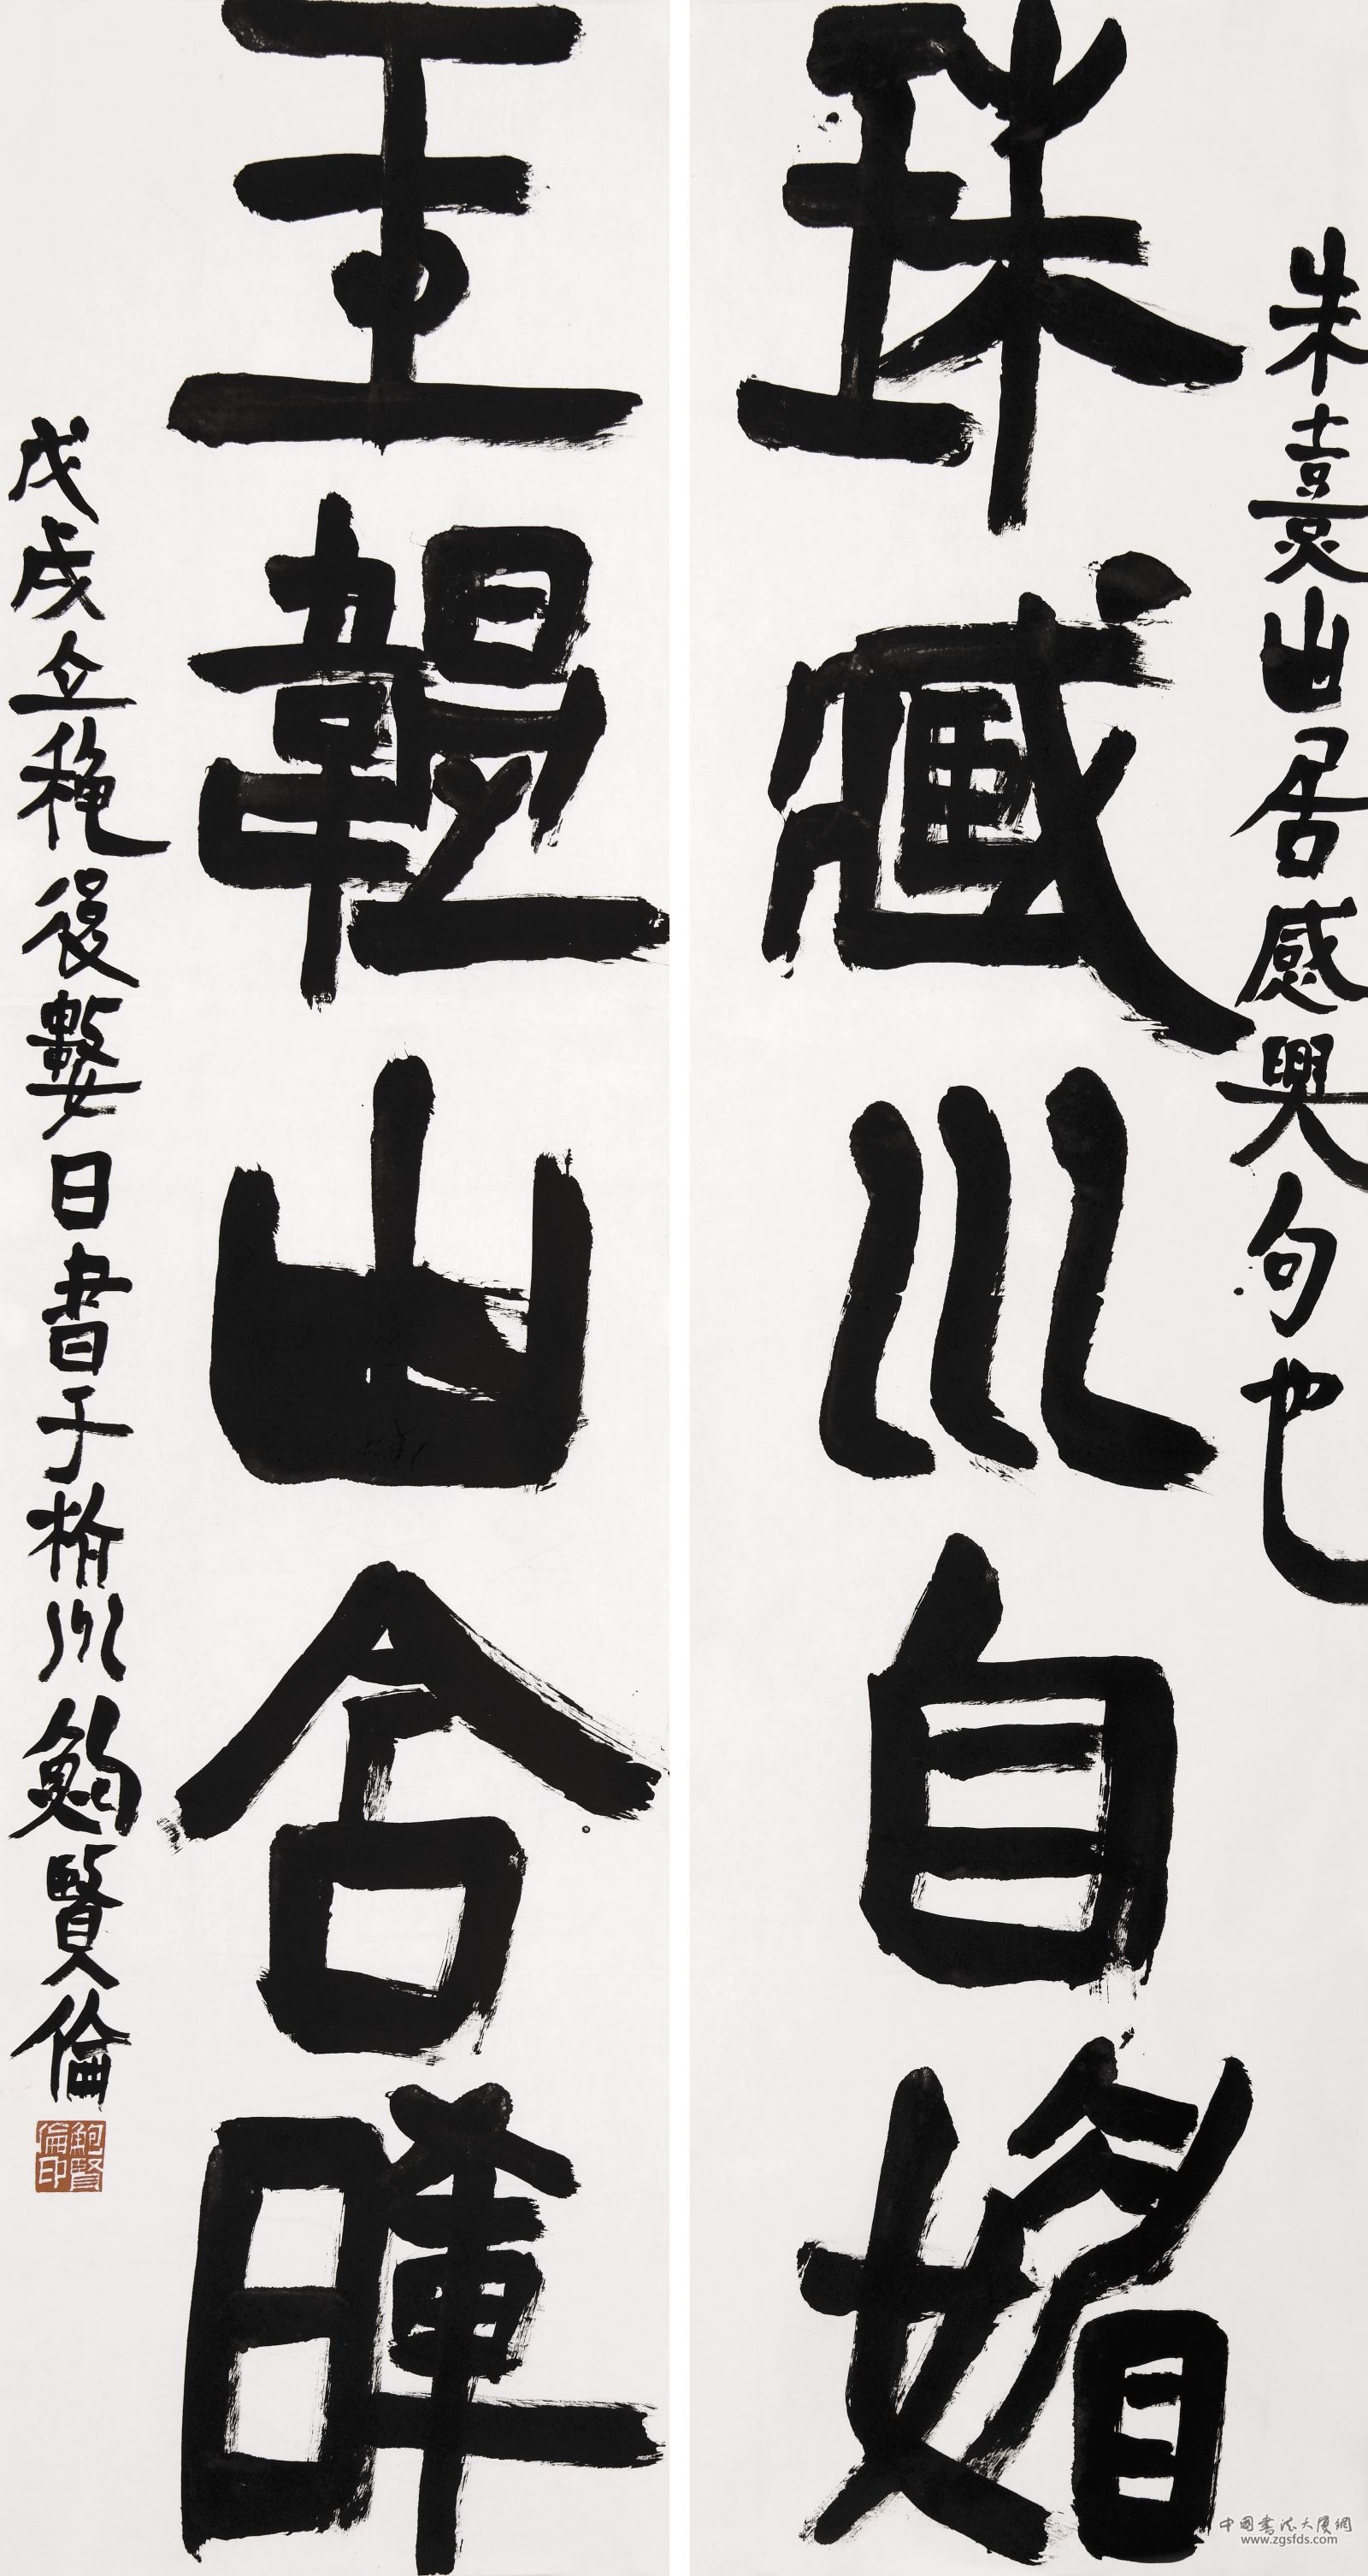 朱熹山居感興句也
珠藏川自媚
玉韞山含暉
戊戌立秋後數日書于榆川鮑賢倫
鮑賢倫印
中国书法大厦網
www.zgsfds.com